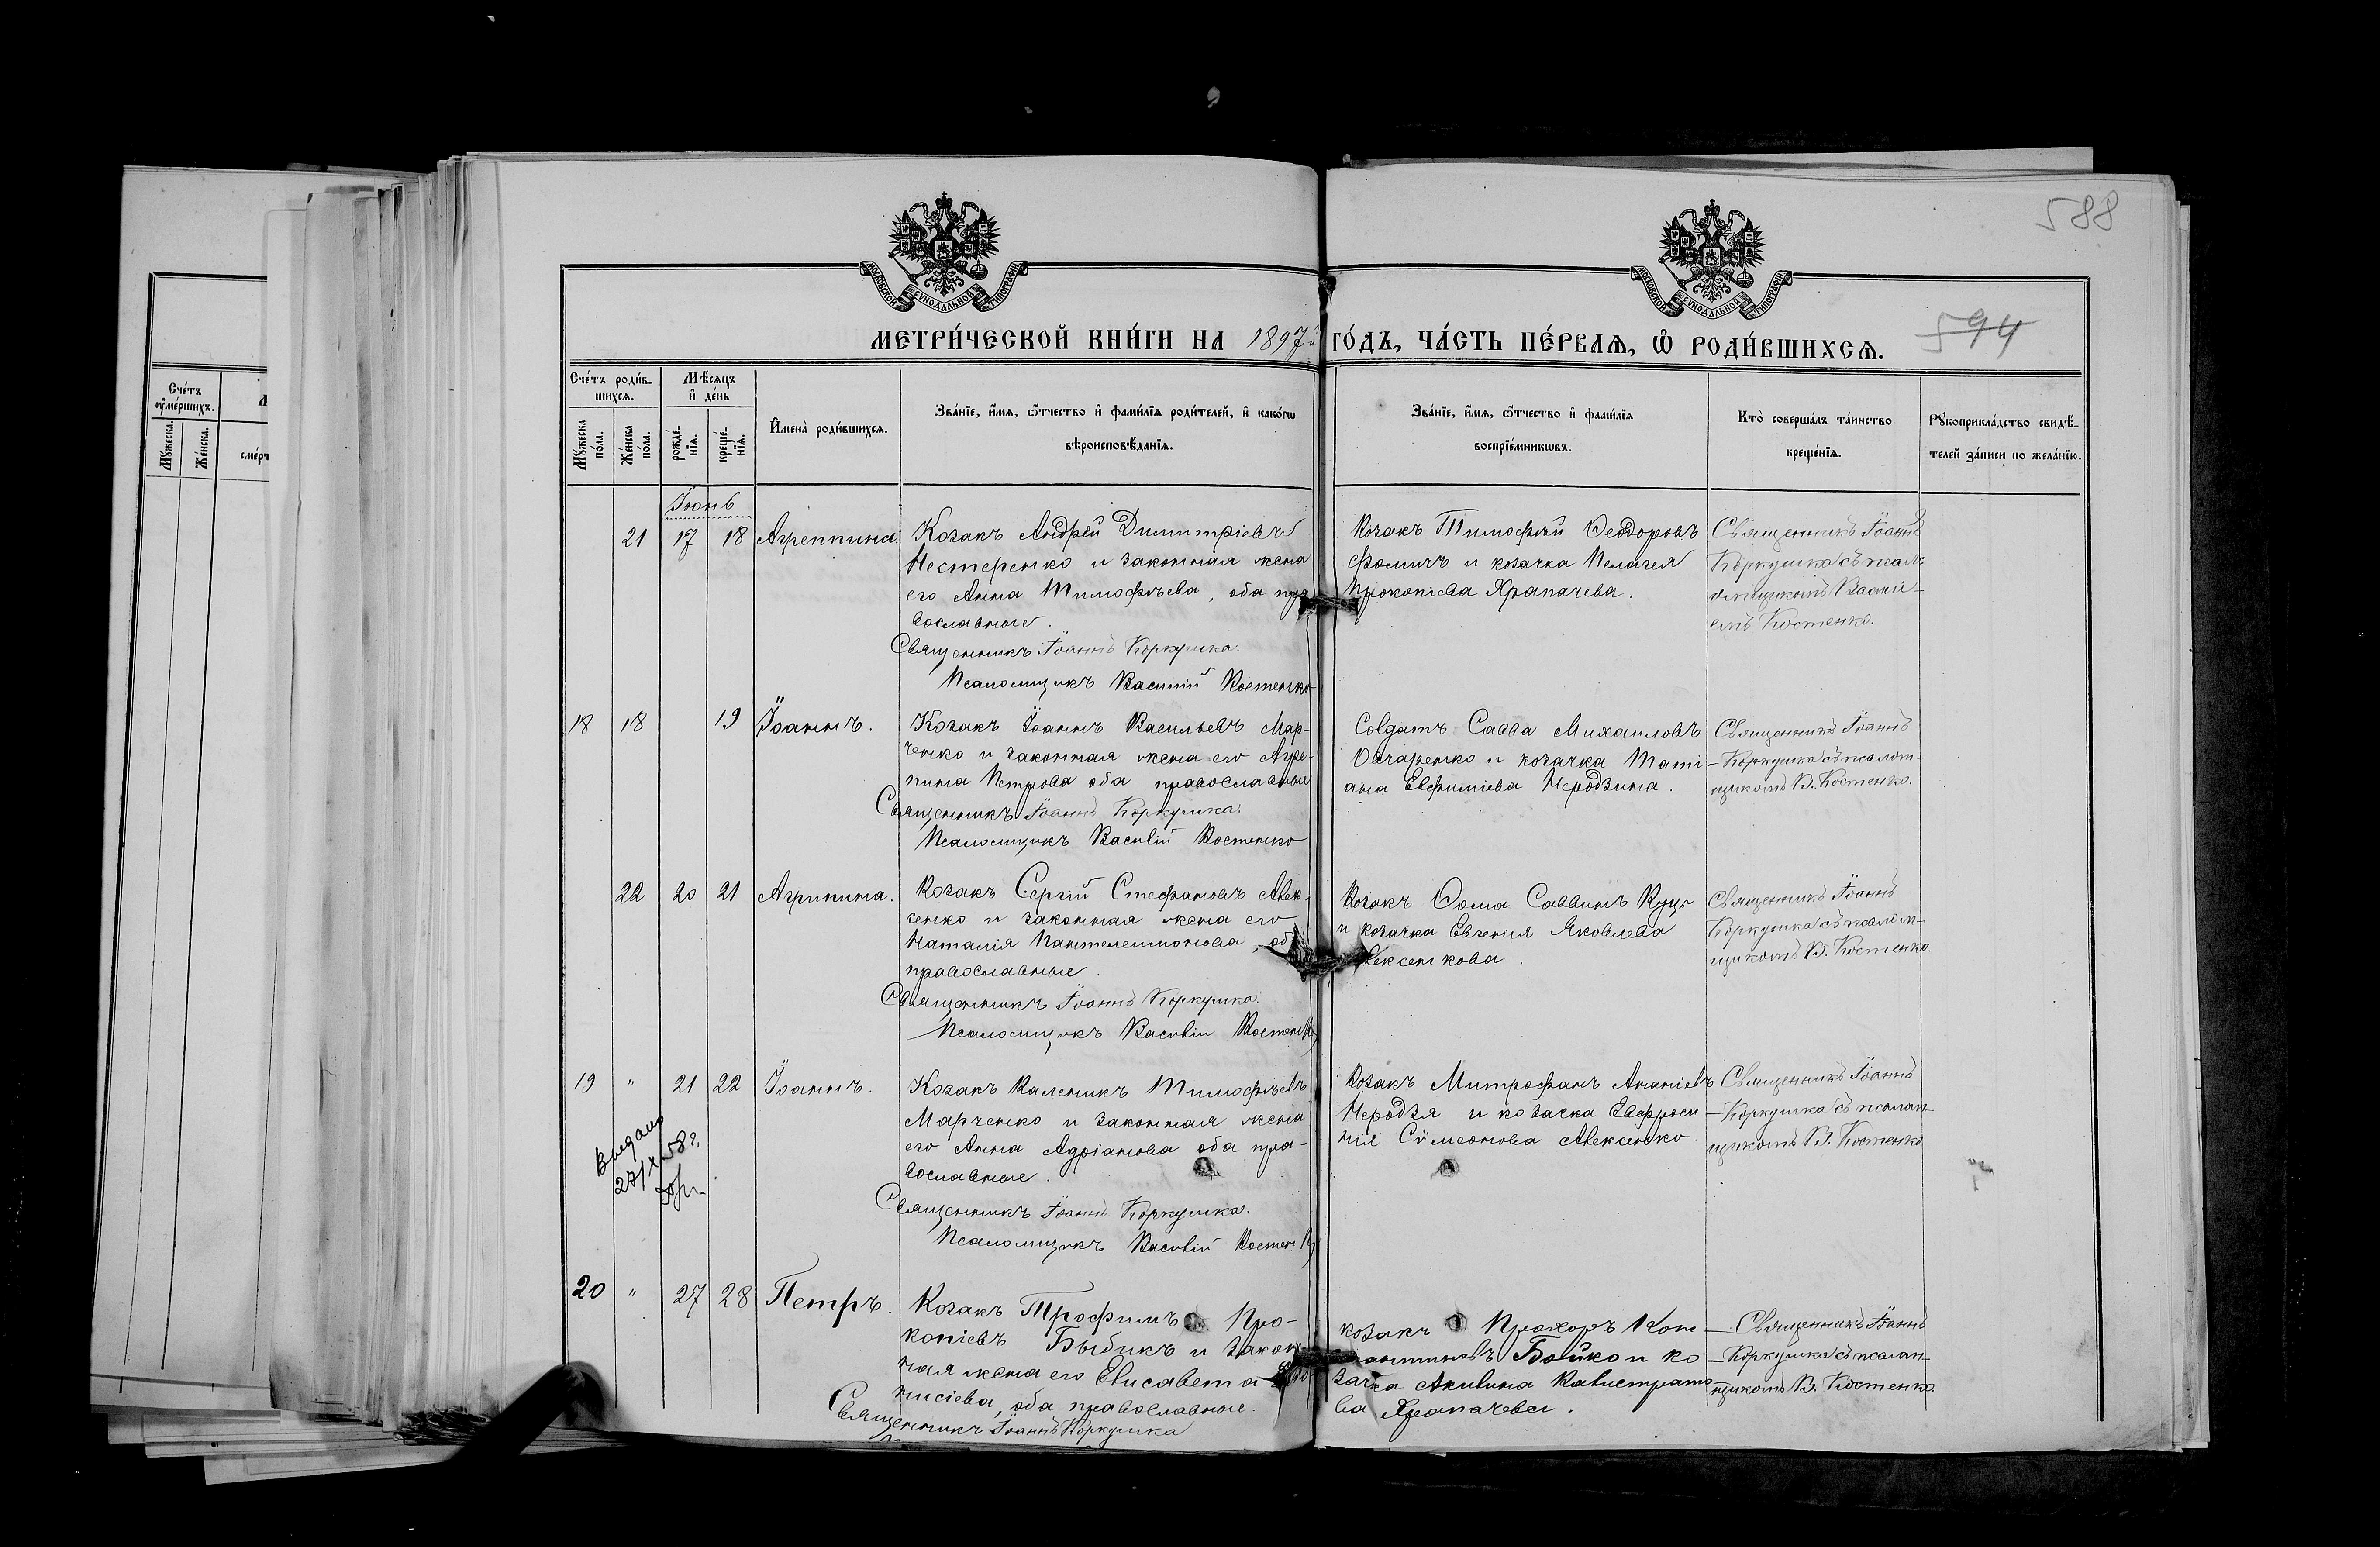 588
МОСКОВСКОЙ СУНОДАЛЬНОЙ ТИПОГРАФІИ
МОСКОВСКОЙ СУНОДАЛЬНОЙ ТИПОГРАФІИ
МЕТРИ́ЧЕСКОЙ КНИ́ГИ НА 1897й ГО́ДЪ, ЧА́СТЬ ПЕ́РВАѦ, Ѡ҆ РОДИ́ВШИХСѦ.
594
Сче́тъ ᲂу҆ме́ршихъ.
Мꙋ́жеска.
Же́нска.
Сче́тъ роди́в-
шихсѧ.
Мꙋ́жеска по́ла.
Же́нска по́ла.
Мѣ́сѧцъ
и҆ де́нь
рожде́-нїѧ.
креще́-нїѧ.
И҆мена̀ роди́вшихсѧ.
Зва́нїе, и҆́мѧ, ѻ҆́тчество и҆ фами́лїѧ роди́телей, и҆ како́гѡ
вѣроисповѣ́данїѧ.
Зва́нїе, и҆́мѧ, ѻ҆́тчество и҆ фами́лїѧ
воспрїе́мникѡвъ.
Кто̀ соверша́лъ та́инство
креще́нїѧ.
Рꙋкоприкла́дство свидѣ́-
телей за́писи по жела́нїю.
Іюнь
21 17 18 Агреппина.
Козакъ Андрей Димитріевъ
Нестеренко и законная жена
его Анна Тимофѣева, оба пра
вославные.
Священникъ Іоаннъ Коркушка.
Псаломщикъ Василій Костенко
Козакъ Тимофѣй Ѳеодоровъ
Фомичъ и козачка Пелагея
Прокопіева Храпачева.
Священникъ Іоаннъ
Коркушка съ псал
омщикомъ Васили-
емъ Костенко.
18 18 19 Іоаннъ.
Козакъ Іоаннъ Васильевъ Мар-
ченко и законная жена его Агре-
пина Петрова оба православные
Священникъ Іоаннъ Коркушка.
Псаломщикъ Василій Костенко
Солдатъ Савва Михаиловъ
Овчаренко и козачка Тати
ана Евфиміева Неродзина.
Священникъ Іоаннъ
Коркушка съ псалом-
щикомъ В. Костенко.
22 20 21 Агрипина.
Козакъ Сергій Стефановъ Алек-
сенко и законная жена его
Наталія Пантелеимонова, об
православные.
Священникъ Іоаннъ Коркушка.
Псаломщикъ Василій Костенк
Козакъ Ѳома Саввинъ Куцъ
и козачка Евгенія Яковлева
лексенкова.
Священникъ Іоаннъ
Коркушка съ псалом-
щикомъ В. Костенко.
19 " 21 22 Іоаннъ.
Видано
27/X 58 г.
Козакъ Каленикъ Тимофѣевъ
Марченко и законная жена
его Анна Адріанова оба пра-
вославные.
Священникъ Іоаннъ Коркушка.
Псаломщикъ Василій Костенк
Козакъ Митрофанъ Ананіевъ
Неродзя и козачка Евфроси
нія Сѵмеонова Алексенко.
Священникъ Іоаннъ
Коркушка съ псалом-
щикомъ В. Костенко
20 " 27 28 Петръ.
Козакъ Трофимъ Про-
копіевъ Быбикъ и закон
ная жена его Елисавета
нисіева, оба православные.
Священникъ Іоаннъ Коркушка
козакъ Прохоръ Кон
стантиновъ Бойко и ко
зачка Акилина Калистрато
ва Храпачева.
Священникъ Іоаннъ
Коркушка съ псалом-
щикомъ В. Костенко